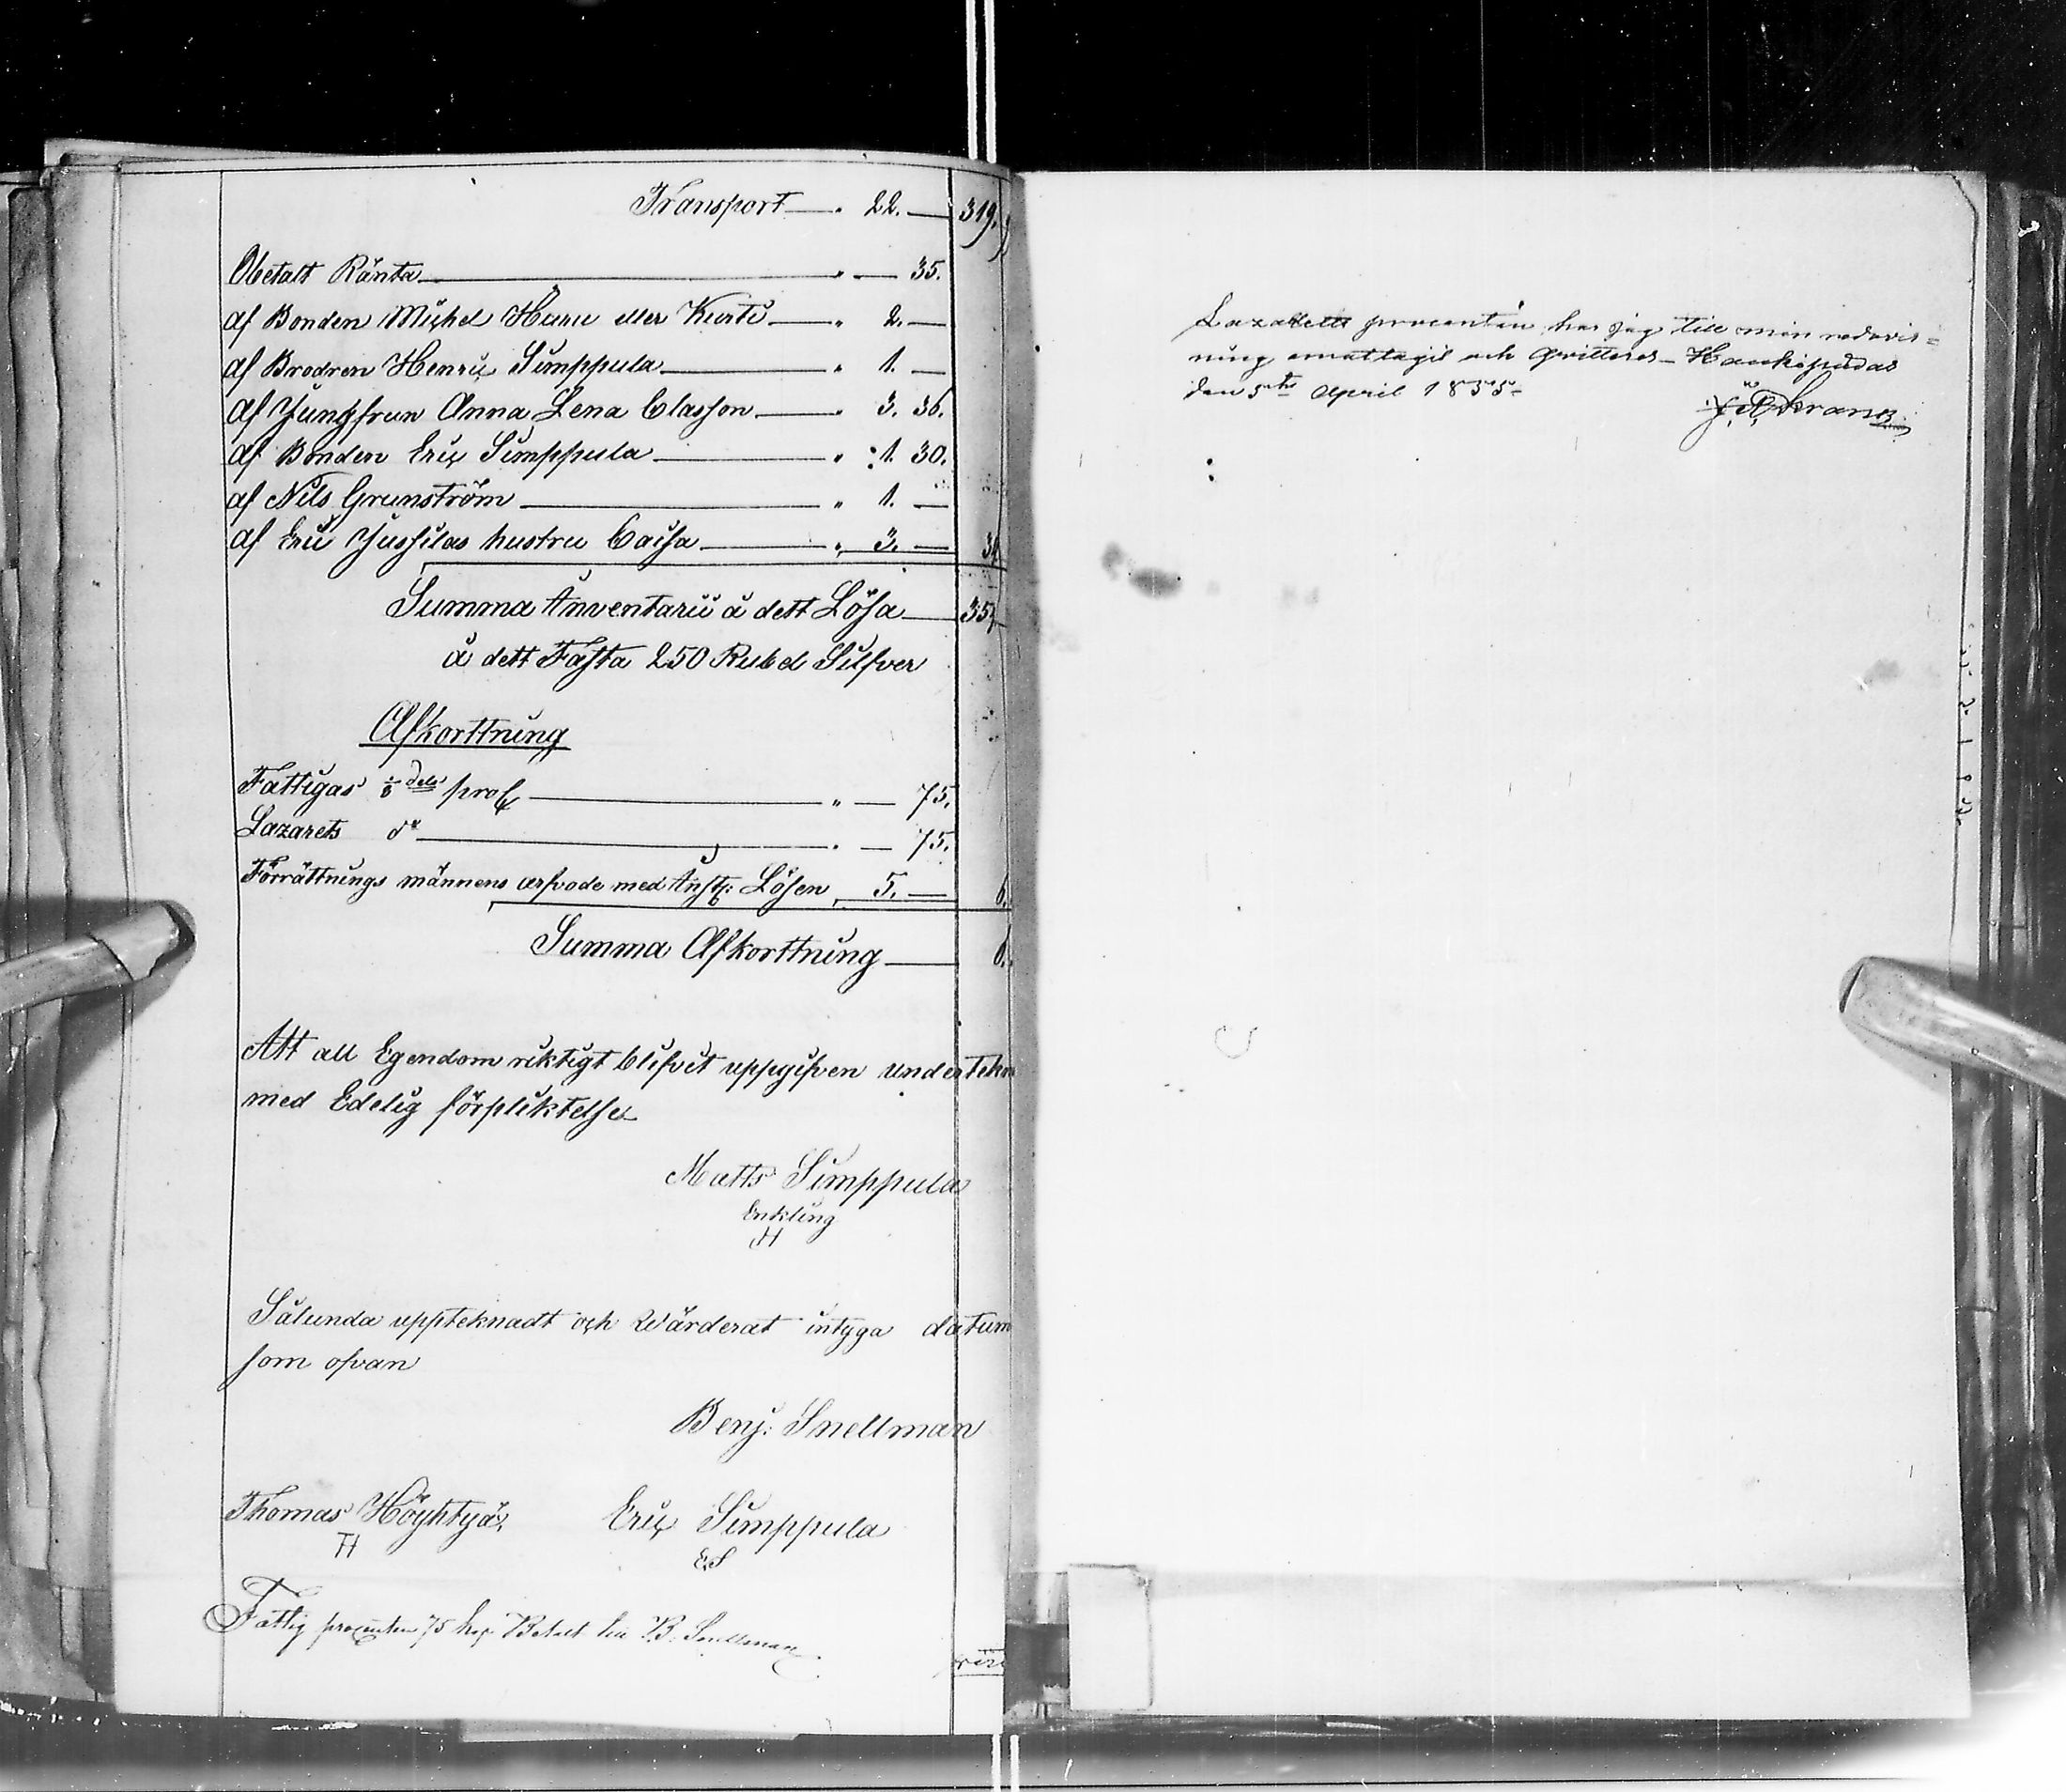 Transport — " 22. — 319.
Obetalt Ränta — " — 35.
af Bonden Michel Huru eller Kurti — " 2. —
af Brodren Henric Simppula — " 1. —
af Jungfrun Anna Lena Classon — " 3. 36.
af Bonden Eric Simppula — " 1. 30.
af Nils Grunström — " 1. —
af Eric Jussilas hustru Caisa — " 3. — 34
Summa Inventarii å dett Lösa — 357
å dett Fasta 250 Rubel Silfver
Afkorttning
Fattigas 1/8 dels proC — " — 75.
Lazarets do — " — 75.
Förrättnings männens arfvode med Lösen " 5. — 6.
Summa Afkorttning — 6.
Att all Egendom riktigt blifvit uppgifven undertekn
med Edelig förpliktelse
Matts Simppula
Enkling
Sålunda uppteknadt och Wärderat intyga datum
som ofvan
Benj: Snellman
Thomas Höyhtyä, Eric Simppula
TH ES
Fattig procenten 75 kop Betalt B. Snellman
Lazaretts procenten har jag till min redovis=
ning emottagit och qvitteras – Haukipudas
den 5te April 1855 –